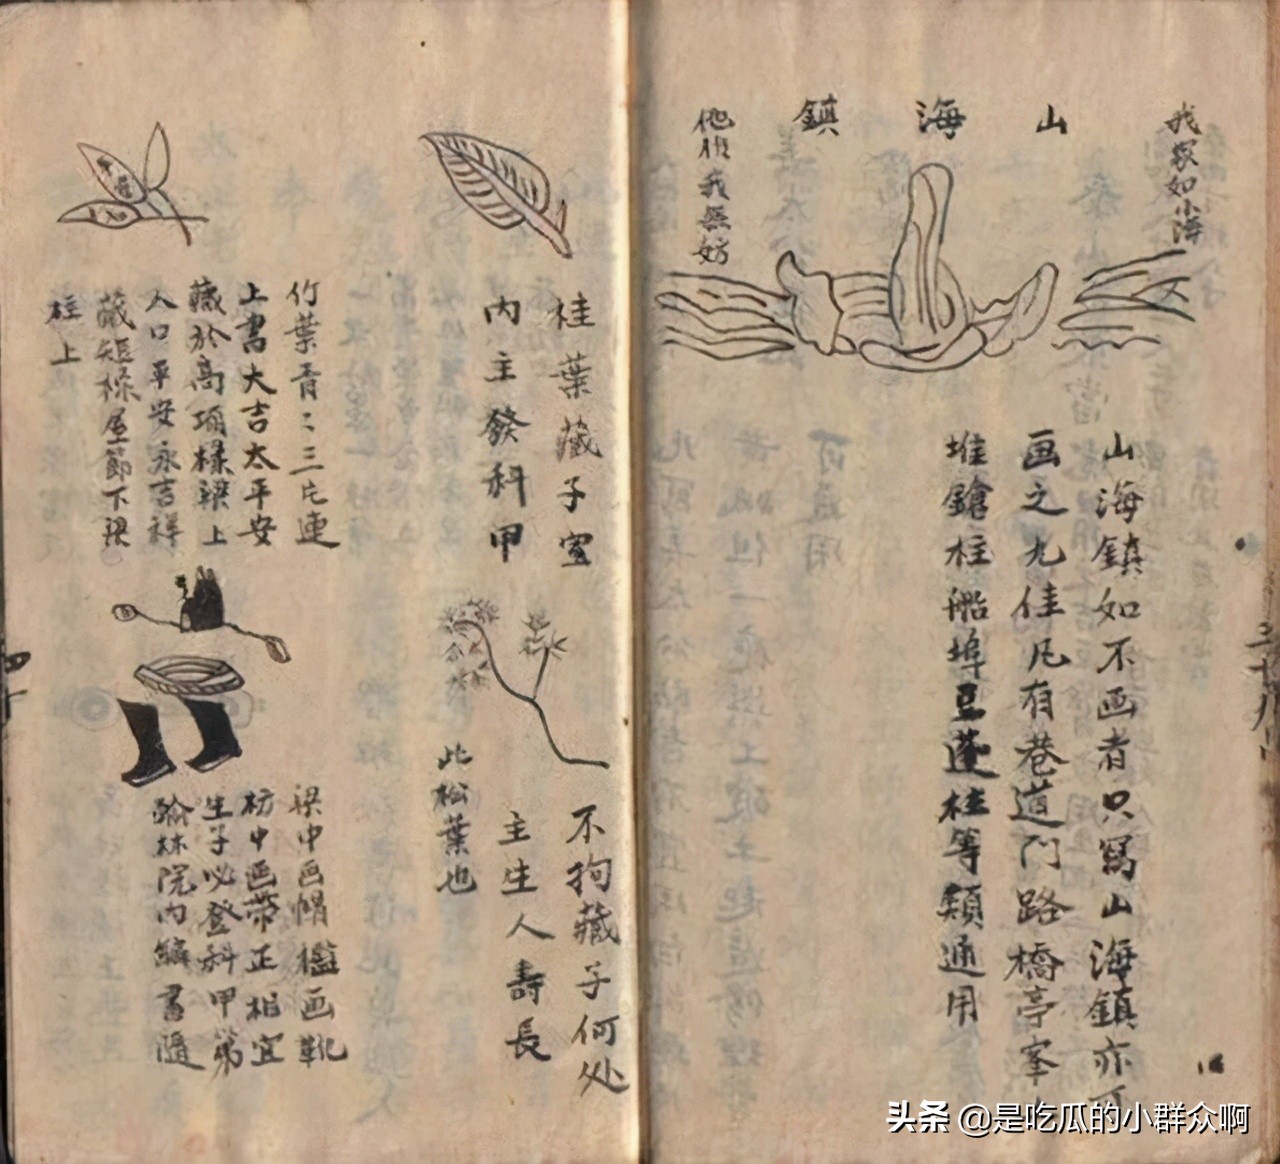 我家如小海
山海鎮
他我無妨
山海鎮如不画者只寫山海鎮亦可
画之尤佳凡有巷道门路橋亭峯土
堆鎗柱船埠豆蓬柱等類通用
桂葉藏子室
内主發科甲
不拘藏子何处
主生人壽長
此松葉也
竹葉青〻三片連
上書大吉太平安
藏於高頂樑梁上
人口平安永吉祥
藏短樑屋節下梁
柱上
梁中画帽檻画靴
枋中画带正相宜
生子必登科甲第
翰林院内編書隨
四十
头条 @是吃瓜的小群众啊